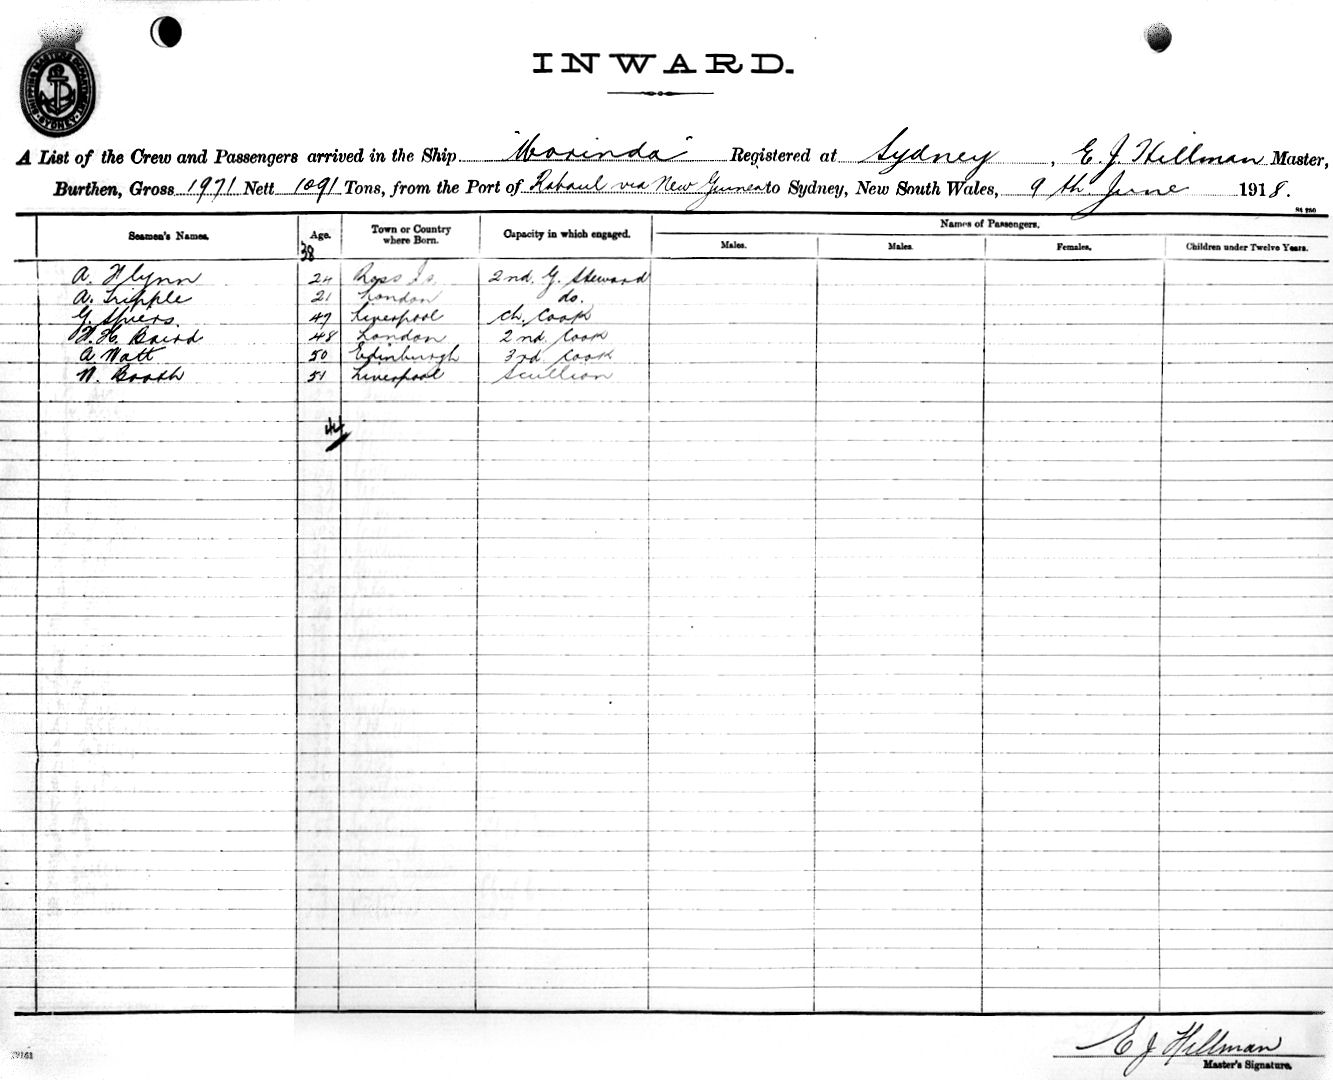 SHIPPING MASTER'S DEPARTMENT SYDNEY
INWARD.
A List of the Crew and Passengers arrived in the Ship "Morinda" Registered at Sydney, E. J. Hillman Master,
Burthen, Gross 1971 Nett 1091 Tons, from the Port of Rabaul via New Guinea to Sydney, New South Wales, 9th June 1918.
Names of Passengers.
Seamen's Names. Age. Town or Country where Born. Capacity in which engaged. Males. Males. Females. Children under Twelve Years.
38
A. Flynn 24 Ross Is. 2nd. G. Steward
A. Tripple 21 London do.
G. Spiers. 47 Liverpool Ch. Cook
W. H. Baird 48 London 2nd Cook
A Watt 50 Edinburgh 3rd Cook
W. Booth 51 Liverpool Scullion
44
E J Hillman
Master's Signature.